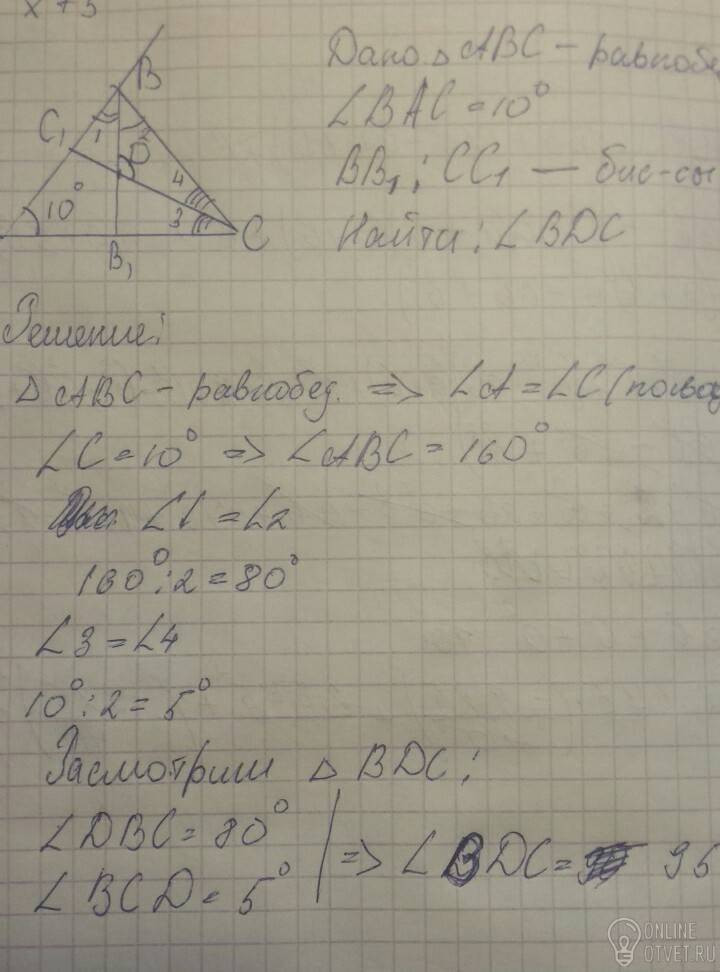 x + 5
B
C₁
1
2
D
4
10°
3
C
B₁
Дано △ ABC – равнобе
∠BAC = 10°
BB₁; CC₁ — бис-сы
Найти: ∠BDC
Решение:
△ ABC – равнобед. => ∠A = ∠C (по
∠C = 10° => ∠ABC = 160°
∠1 = ∠2
160° : 2 = 80°
∠3 = ∠4
10° : 2 = 5°
Рассмотрим △ BDC:
∠DBC = 80°
∠BCD = 5°
=> ∠BDC = 95
ONLINE
OTVET.RU